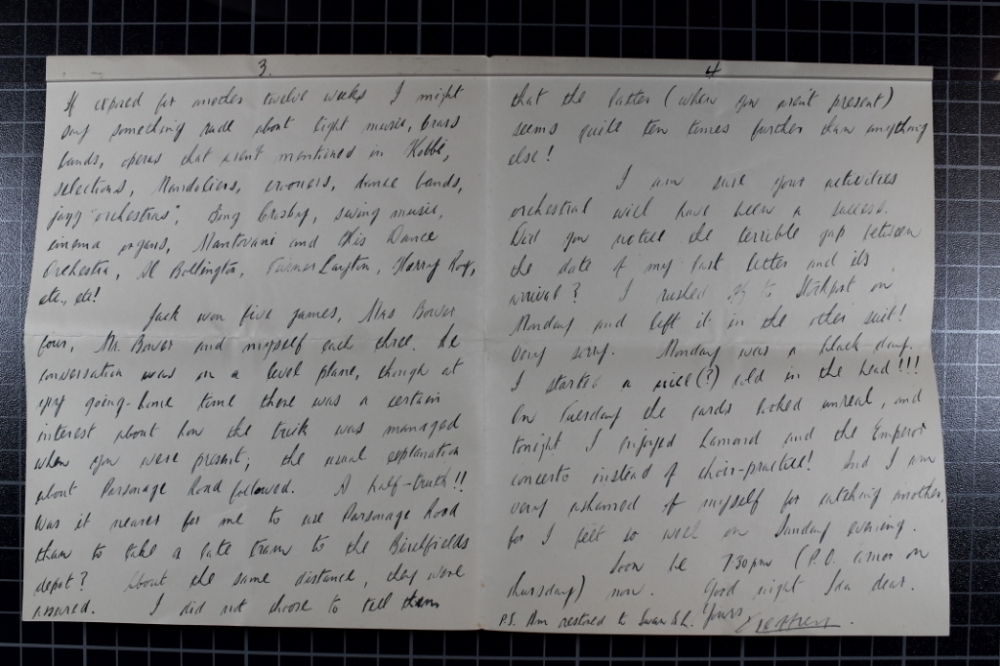 3.
If expired for another twelve weeks I might
say something rude about light music, brass
bands, operas that aren't mentioned in Kobbé,
selections, Mandoliers, crooners, dance bands,
jazz "orchestras", Bing Crosby, swing music,
cinema organs, Mantovani and His Dance
Orchestra, Al Bollington, Turner Layton, Harry Roy,
etc., etc!
Jack won five games, Mrs Bower
four, Mr. Bower and myself each three. The
conversation was on a level plane, though at
my going-home time there was a certain
interest about how the trick was managed
when you were present; the usual explanation
about Parsonage Road followed. A half-truth!!
Was it nearer for me to use Parsonage Road
than to take a late tram to the Birchfields
depot? About the same distance, they were
assured. I did not choose to tell them
4
that the latter (when you aren't present)
seems quite ten times further than anything
else!
I am sure your activities
orchestral will have been a success.
Did you notice the terrible gap between
the date of my last letter and its
arrival? I rushed off to Stockport on
Monday and left it in the other suit!
Very sorry. Monday was a black day.
I started a nice(?) cold in the head!!!
On Tuesday the cards looked unreal, and
tonight I enjoyed Lamond and the Emperor
concerto instead of choir-practice! And I am
very ashamed of myself for catching another,
for I felt so well on Sunday evening.
Soon be 7.30pm (P.O. on
Thursday) now. Good night Ida dear.
Yours
P.S. Am restored to Swan S.L.